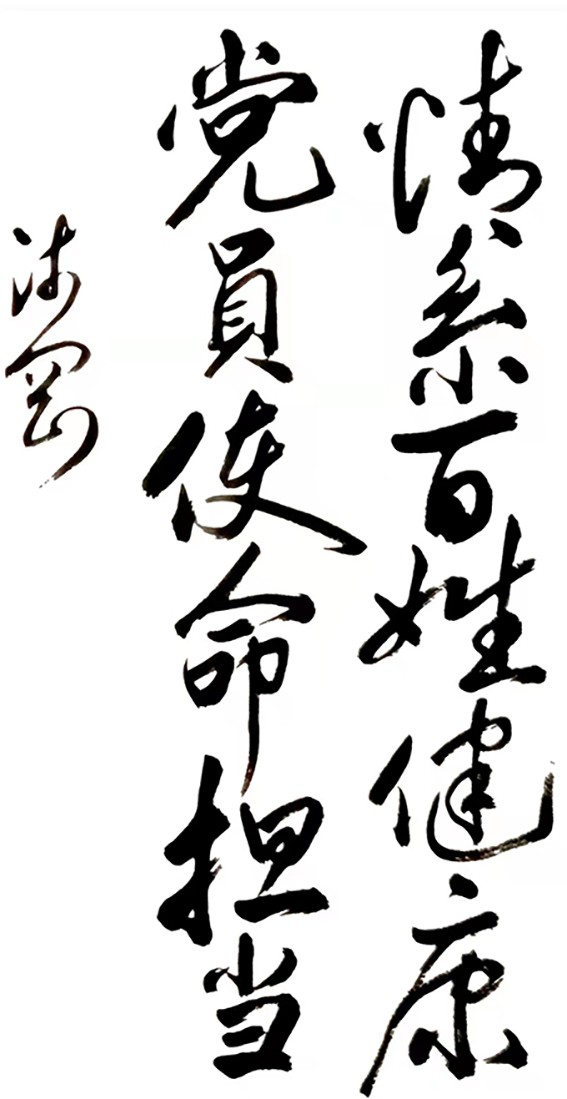 情系百姓健康
党員使命担当